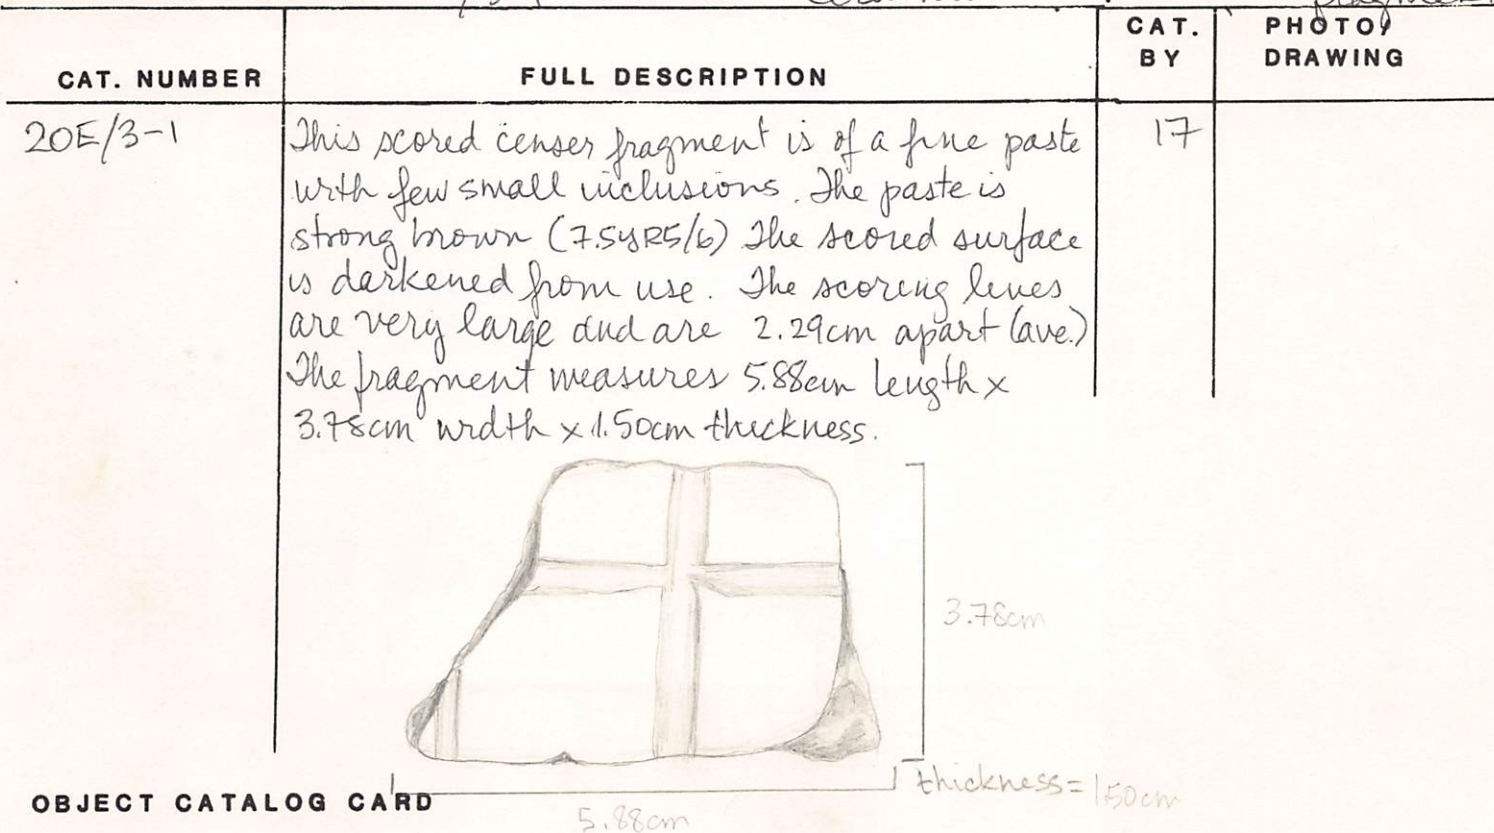 CAT. NUMBER
FULL DESCRIPTION
CAT. BY
PHOTO/ DRAWING
20E/3-1
This scored censer fragment is of a fine paste
with few small inclusions. The paste is
strong brown (7.5YR5/6) The scored surface
is darkened from use. The scoring lines
are very large and are 2.29cm apart (ave.)
The fragment measures 5.88cm length x
3.78cm width x 1.50cm thickness.
17
3.78cm
thickness = 1.50cm
5.88cm
OBJECT CATALOG CARD